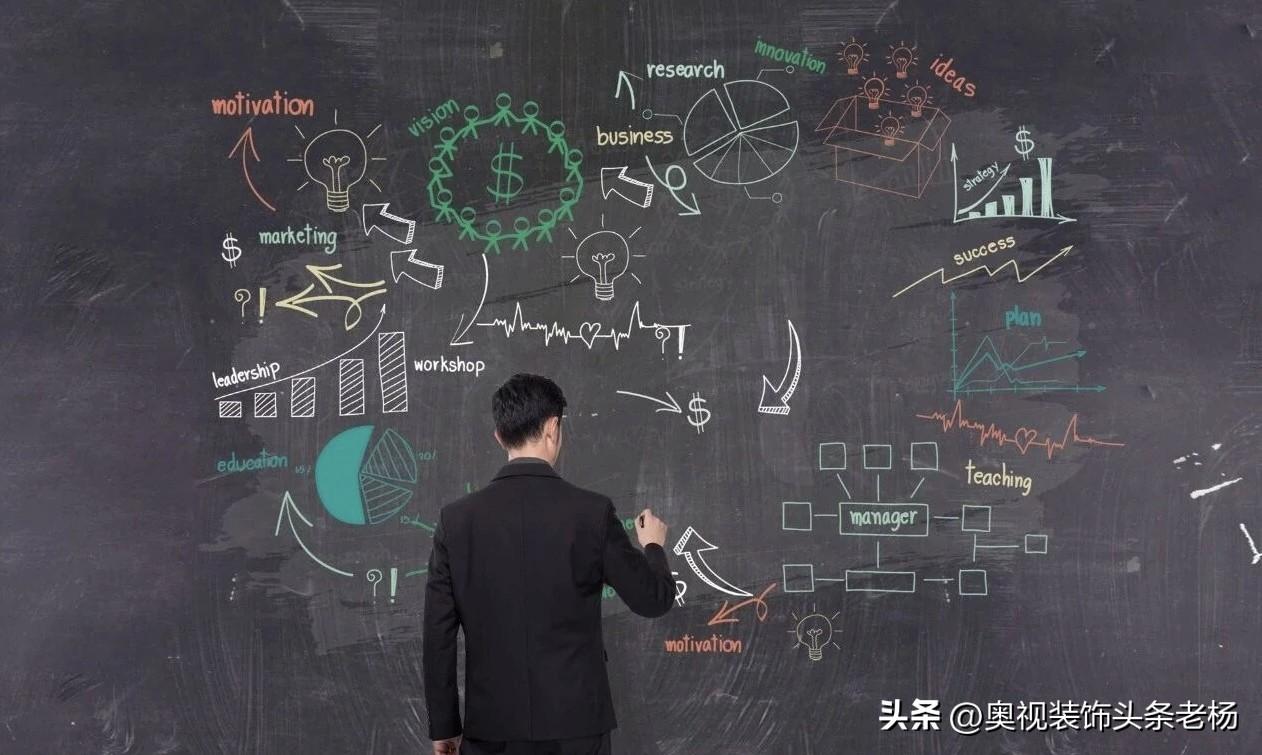 innovation
research
ideas
motivation
vision
business
$
$
strategy
$
marketing
success
?!
plan
?!
leadership
workshop
$
education
teaching
manager
?!
motivation
头条 @奥视装饰头条老杨